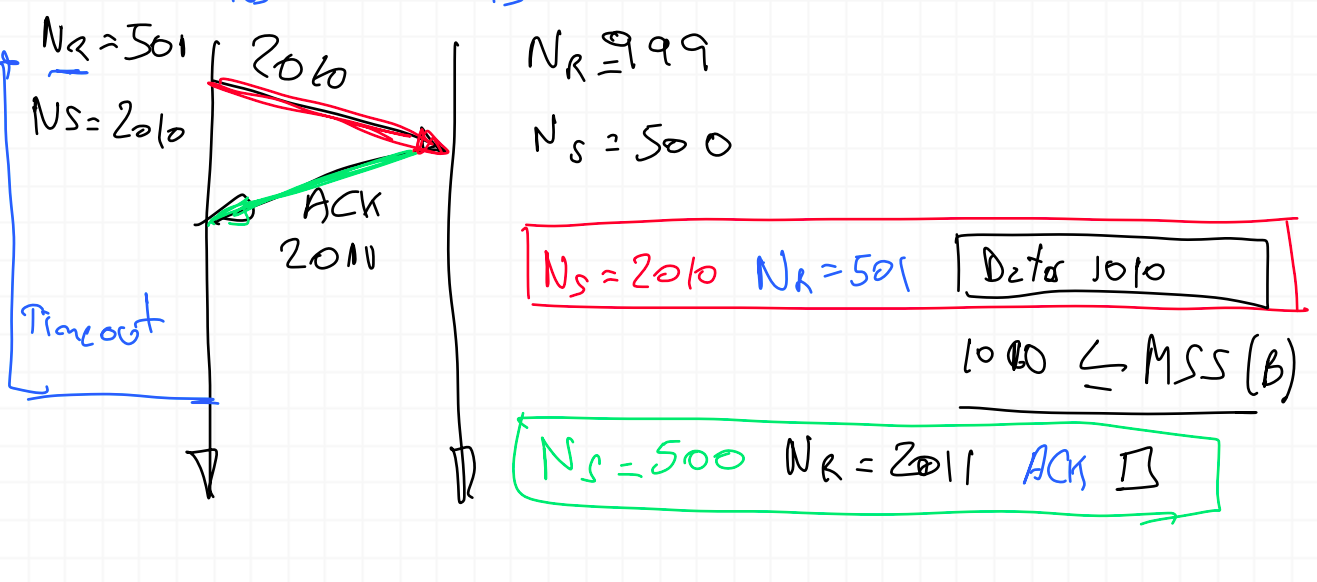 NR = 501
NS = 2010
2010
ACK
2010
Timeout
NR = 999
NS = 500
NS = 2010 NR = 501 Datos 1010
1010 ≤ MSS (B)
NS = 500 NR = 2011 ACK